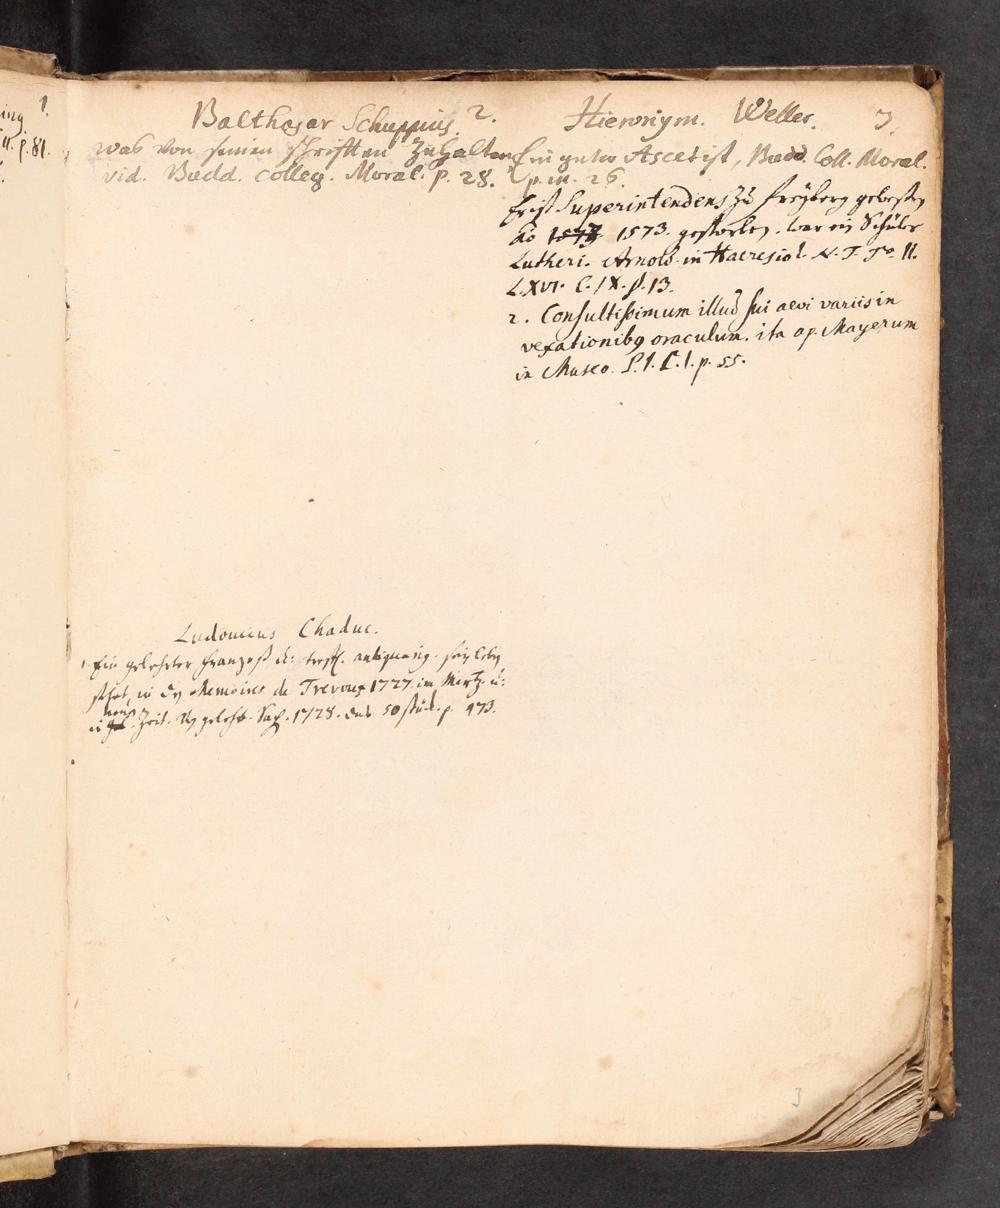 ing 1.
II. p. 81.
Balthasar Schuppius. 2.
was von seinen schrifften zuhalten
vid. Budd. colleg. Moral. p. 28.
Hieronym. Weller. 3.
Ein guter Ascetist, Budd. Coll. Moral.
p. m. 26.
Er ist Superintendens zu Freyberg gewesen
Ao 1577 1573. gestorben. war ein Schüler
Lutheri. Arnold. in Haeresiol. N. T. To. II.
L. XVI. C. IX. p. 13.
2. Consultissimum illud sui aevi variis in
vexationibq oraculum. ita ap. Mayerum
in Museo. P. 1. C. 1. p. 55.
Ludouicus Chaduc.
1. Ein gelehrter Franzoß u. antiquarius. sein Leben
stehet in den Memoires de Trevoux 1727. im Mertz. u.
in neue Zeit. von gelehrt. Sach. 1728. das 50 stück. p. 473.
3